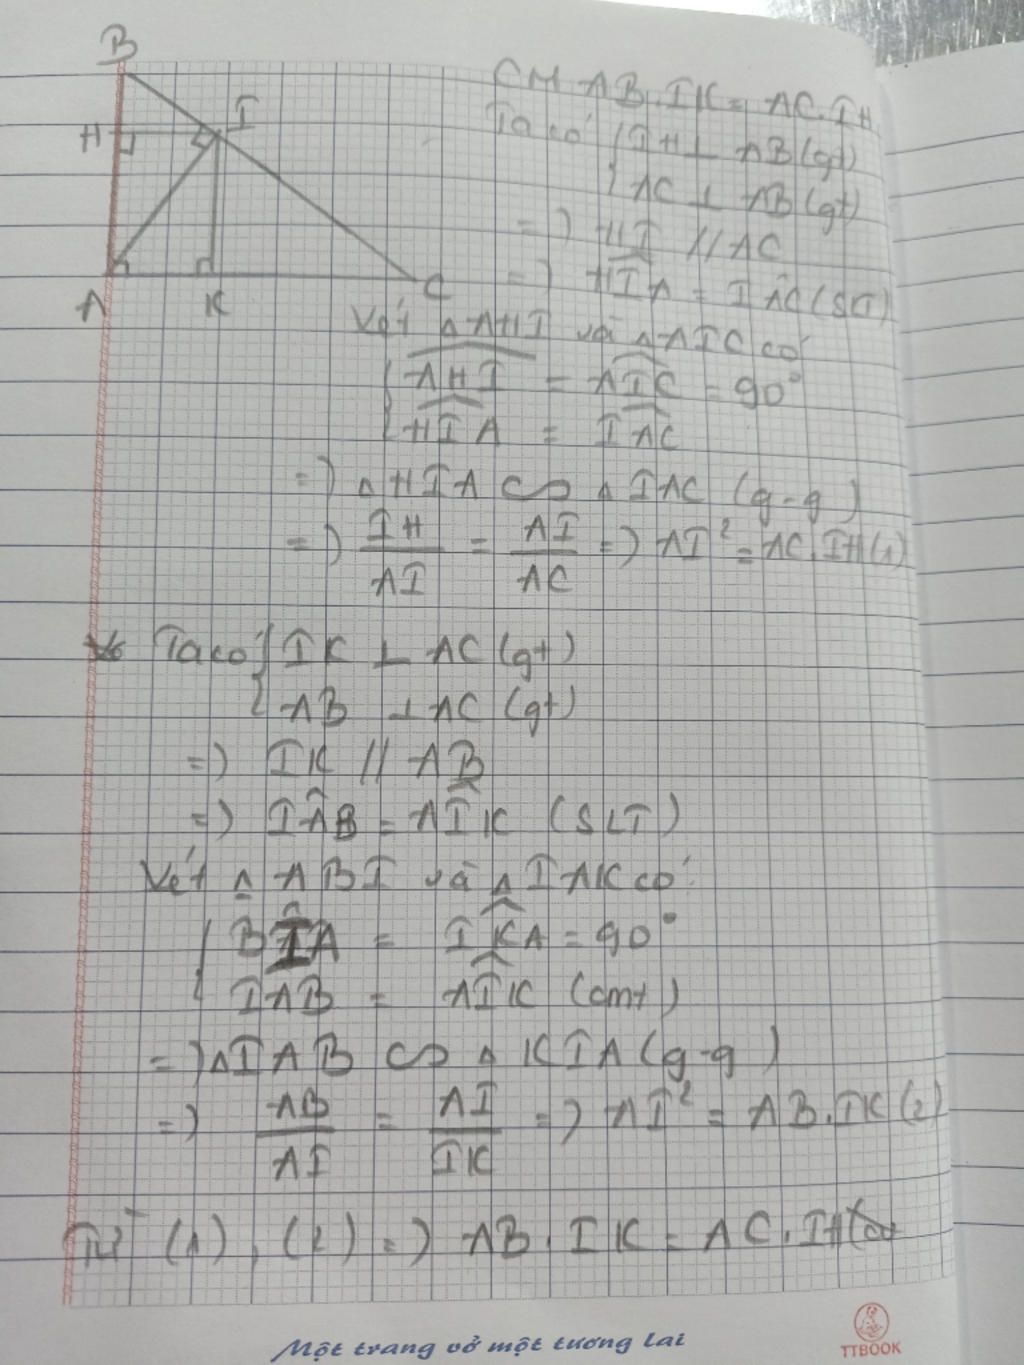 B
H
I
A
K
C
CM AB.IK = AC.IH
Ta có { IH ⊥ AB (gt)
AC ⊥ AB (gt)
=) HI // AC
=) HÎA = IÂC (SLT)
Vét △ AHI và △ AIC có
{ AHI = AIC = 90°
HIA = IAC
=) △ HIA ∽ △ IAC (g-g)
=) IH/AI = AI/AC =) AI² = AC.IH (1)
Ta có { IK ⊥ AC (gt)
AB ⊥ AC (gt)
=) IK // AB
=) IÂB = AÎK (SLT)
Vét △ ABI và △ IAK có:
{ BÎA = IKA = 90°
IAB = AÎK (cmt)
=) △ IAB ∽ △ KIA (g-g)
=) AB/AI = AI/IK =) AI² = AB.IK (2)
Từ (1), (2) =) AB.IK = AC.IH
Một trang vở một tương lai
TTBOOK